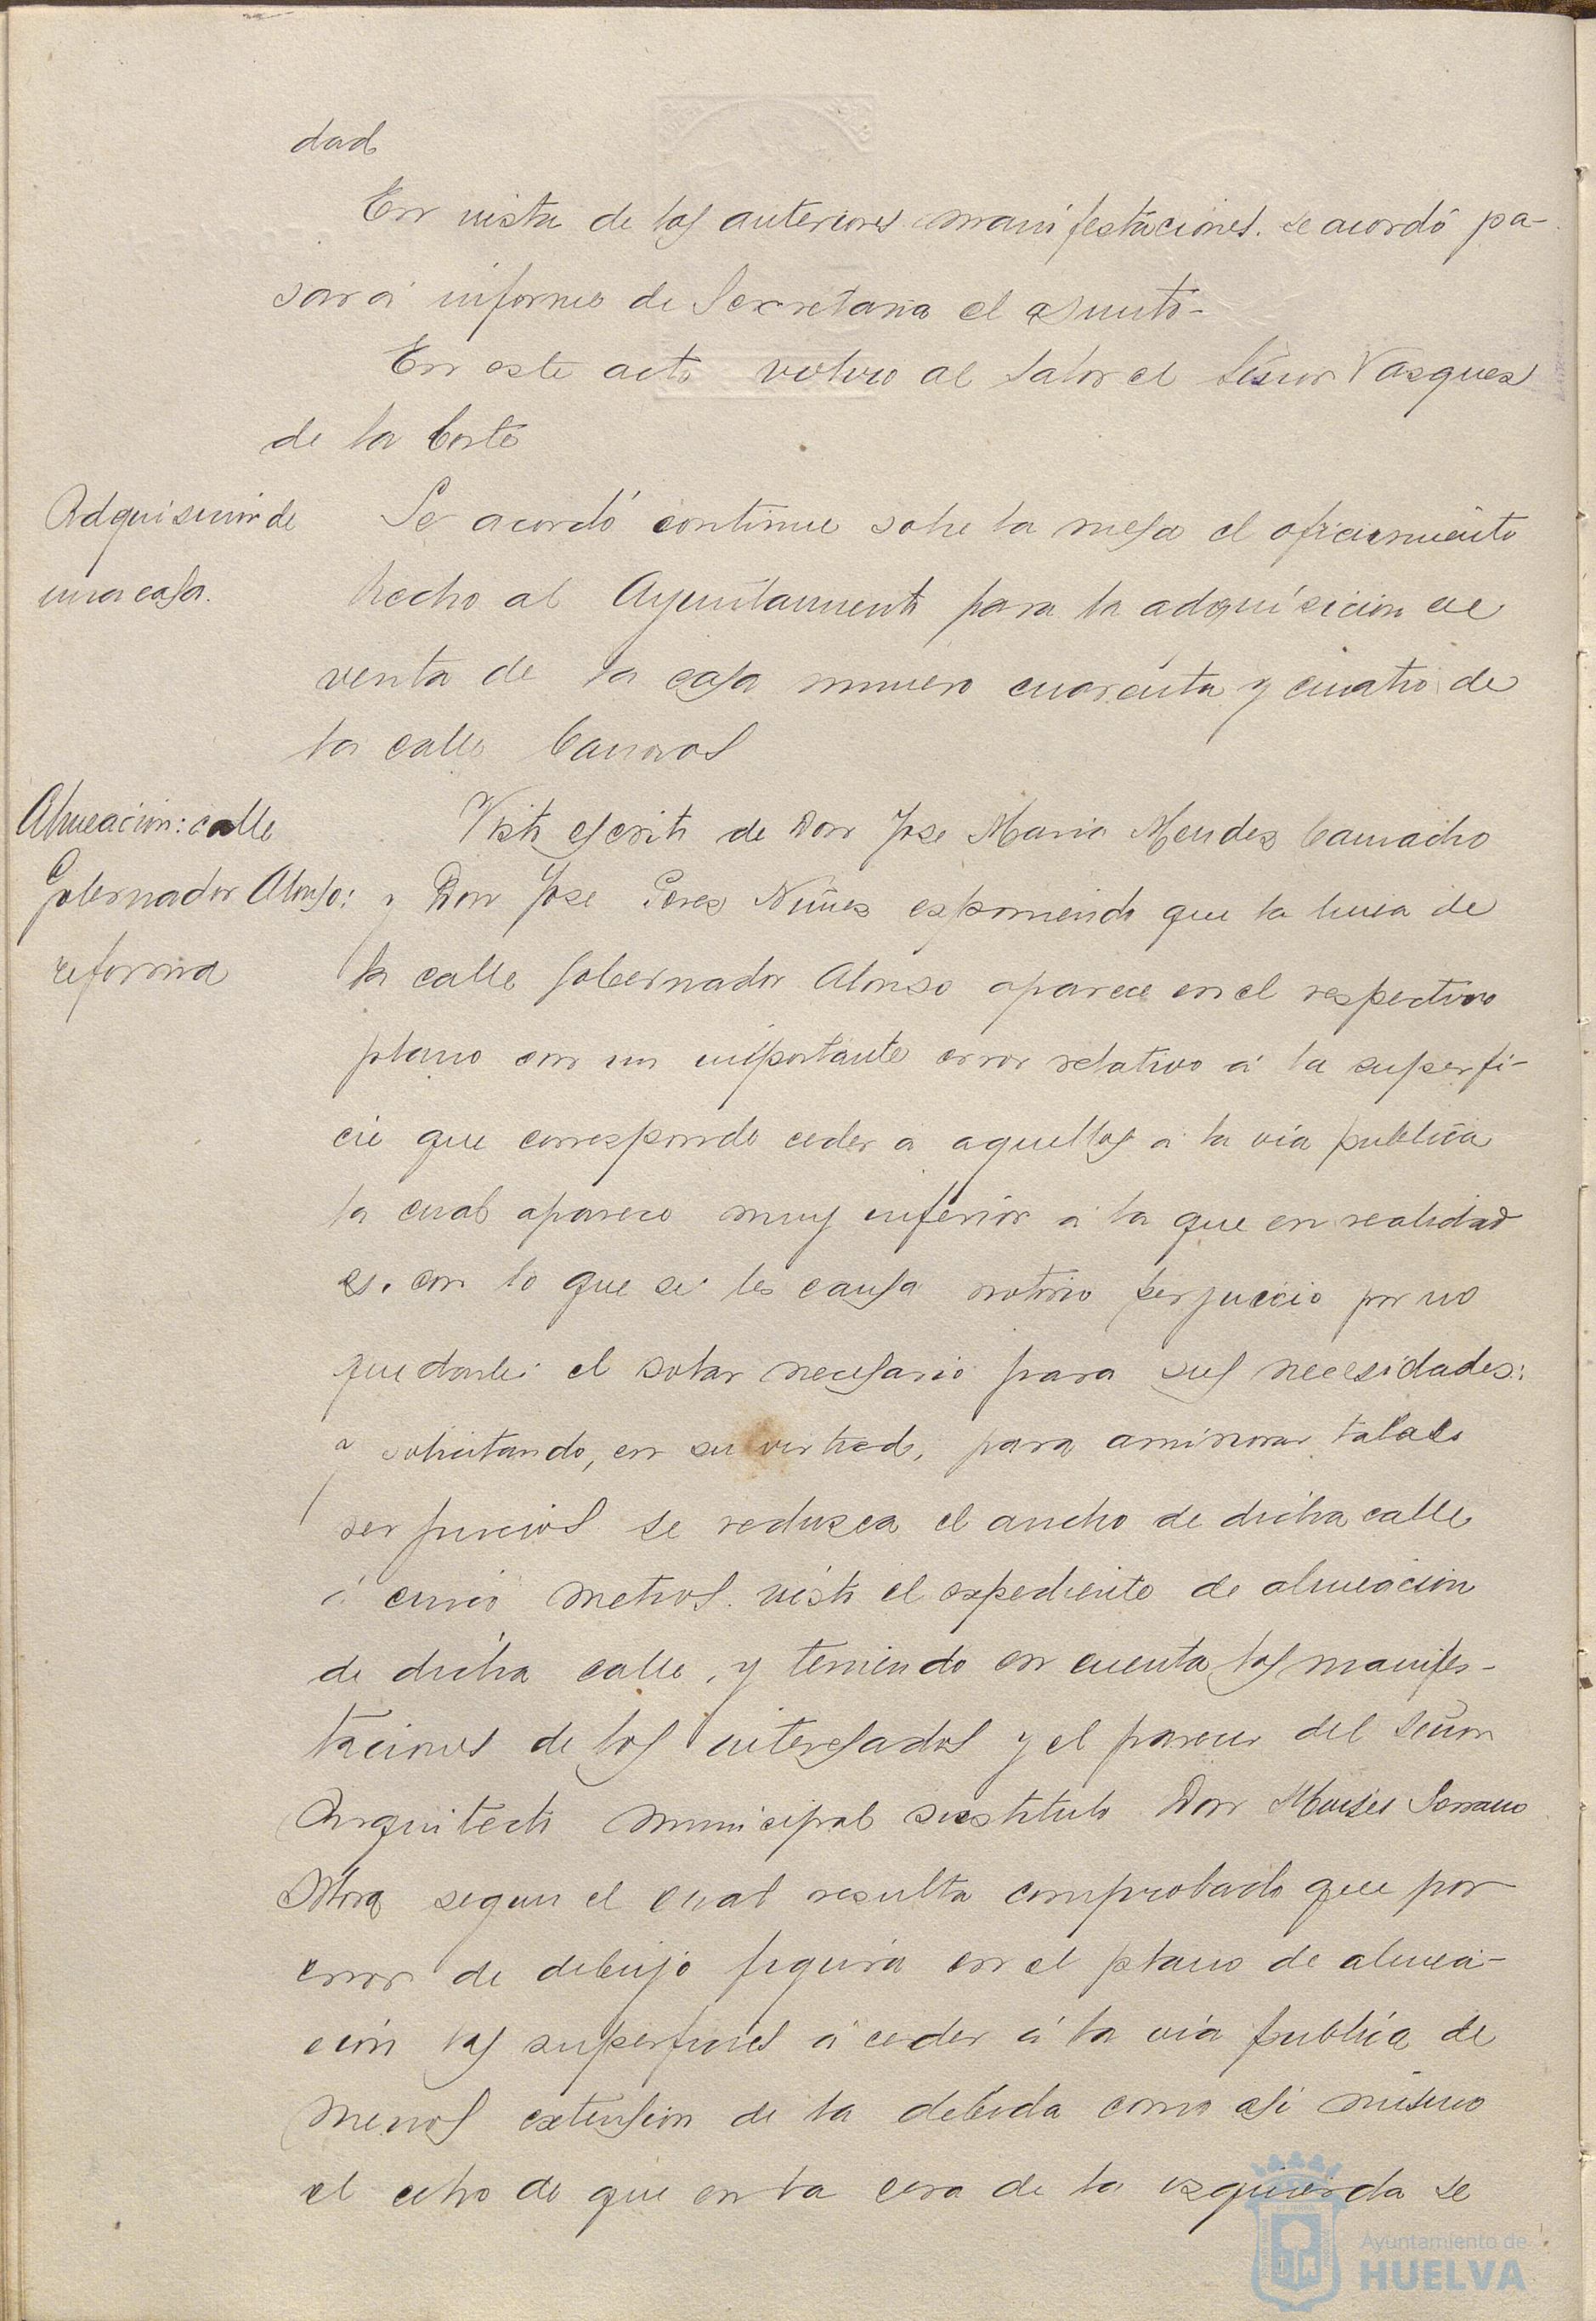 dad
En vista de las anteriores manifestaciones. se acordó pa-
sar á informe de Secretaria el asunto-
En este acto volvio al salon el Señor Vasquez
de la Corte
Adquisicion de
una casa.
Se acordó continue sobre la mesa el ofrecimiento
hecho al Ayuntamiento para la adquisicion en
venta de la casa numero cuarenta y cuatro de
la calle
Alineacion: calle
Gobernador Alonso:
reforma
Visto escrito de Don Jose Maria Mendez Camacho
y Don Jose Perez Nuñez esponiendo que la linea de
la calle Gobernador Alonso aparece en el respectivo
plano con un importante error relativo á la superfi-
cie que corresponde ceder a aquellos á la via publica
la cual aparece muy inferior á la que en realidad
es. con lo que se les causa notorio perjuicio por no
quedarles el solar necesario para sus necesidades:
y solicitando, en su virtud, para aminorar tales
perjuicios se reduzca el ancho de dicha calle
á cinco metros. visto el expediente de alineacion
de dicha calle, y teniendo en cuenta las manifes-
taciones de los interesados y el parecer del Señor
Arquitecto municipal sustituto Don Moises Serrano
Mora segun el cual resulta comprobado que por
error de dibujo figura en el plano de alinea-
cion las superficies á ceder á la via publica de
menos extension de la debida como asi mismo
el echo de que en la cera de la izquierda se
Ayuntamiento de
HUELVA